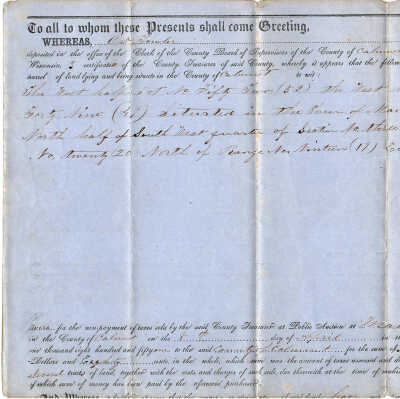 To all to whom these Presents shall come Greeting.
WHEREAS,
deposited in the office of the Clerk of the County Board of Supervisors of the County of Calumet
Wisconsin, 2 certificates of the County Treasurer of said County, whereby it appears that the
parcel of land lying and being situate in the County of Calumet to wit:
The East half of Lot No Fifty Two (52) the East
Forty Nine (49) situated in the Town of
North half of South West quarter of Section No three
No, twenty 20 North of Range No Nineteen (19)
for the nonpayment of taxes sold by the said County Treasurer at Public Auction at
in the County of Calumet on the day of April in
one thousand eight hundred and fifty one to the said County of Calumet for the
Dollars and cents, in the whole, which sum was the amount of taxes assessed and
several tracts of land, together with the costs and charges of such sale, due therewith at the time of
of which sum of money has been paid by the aforesaid purchaser
And Whereas